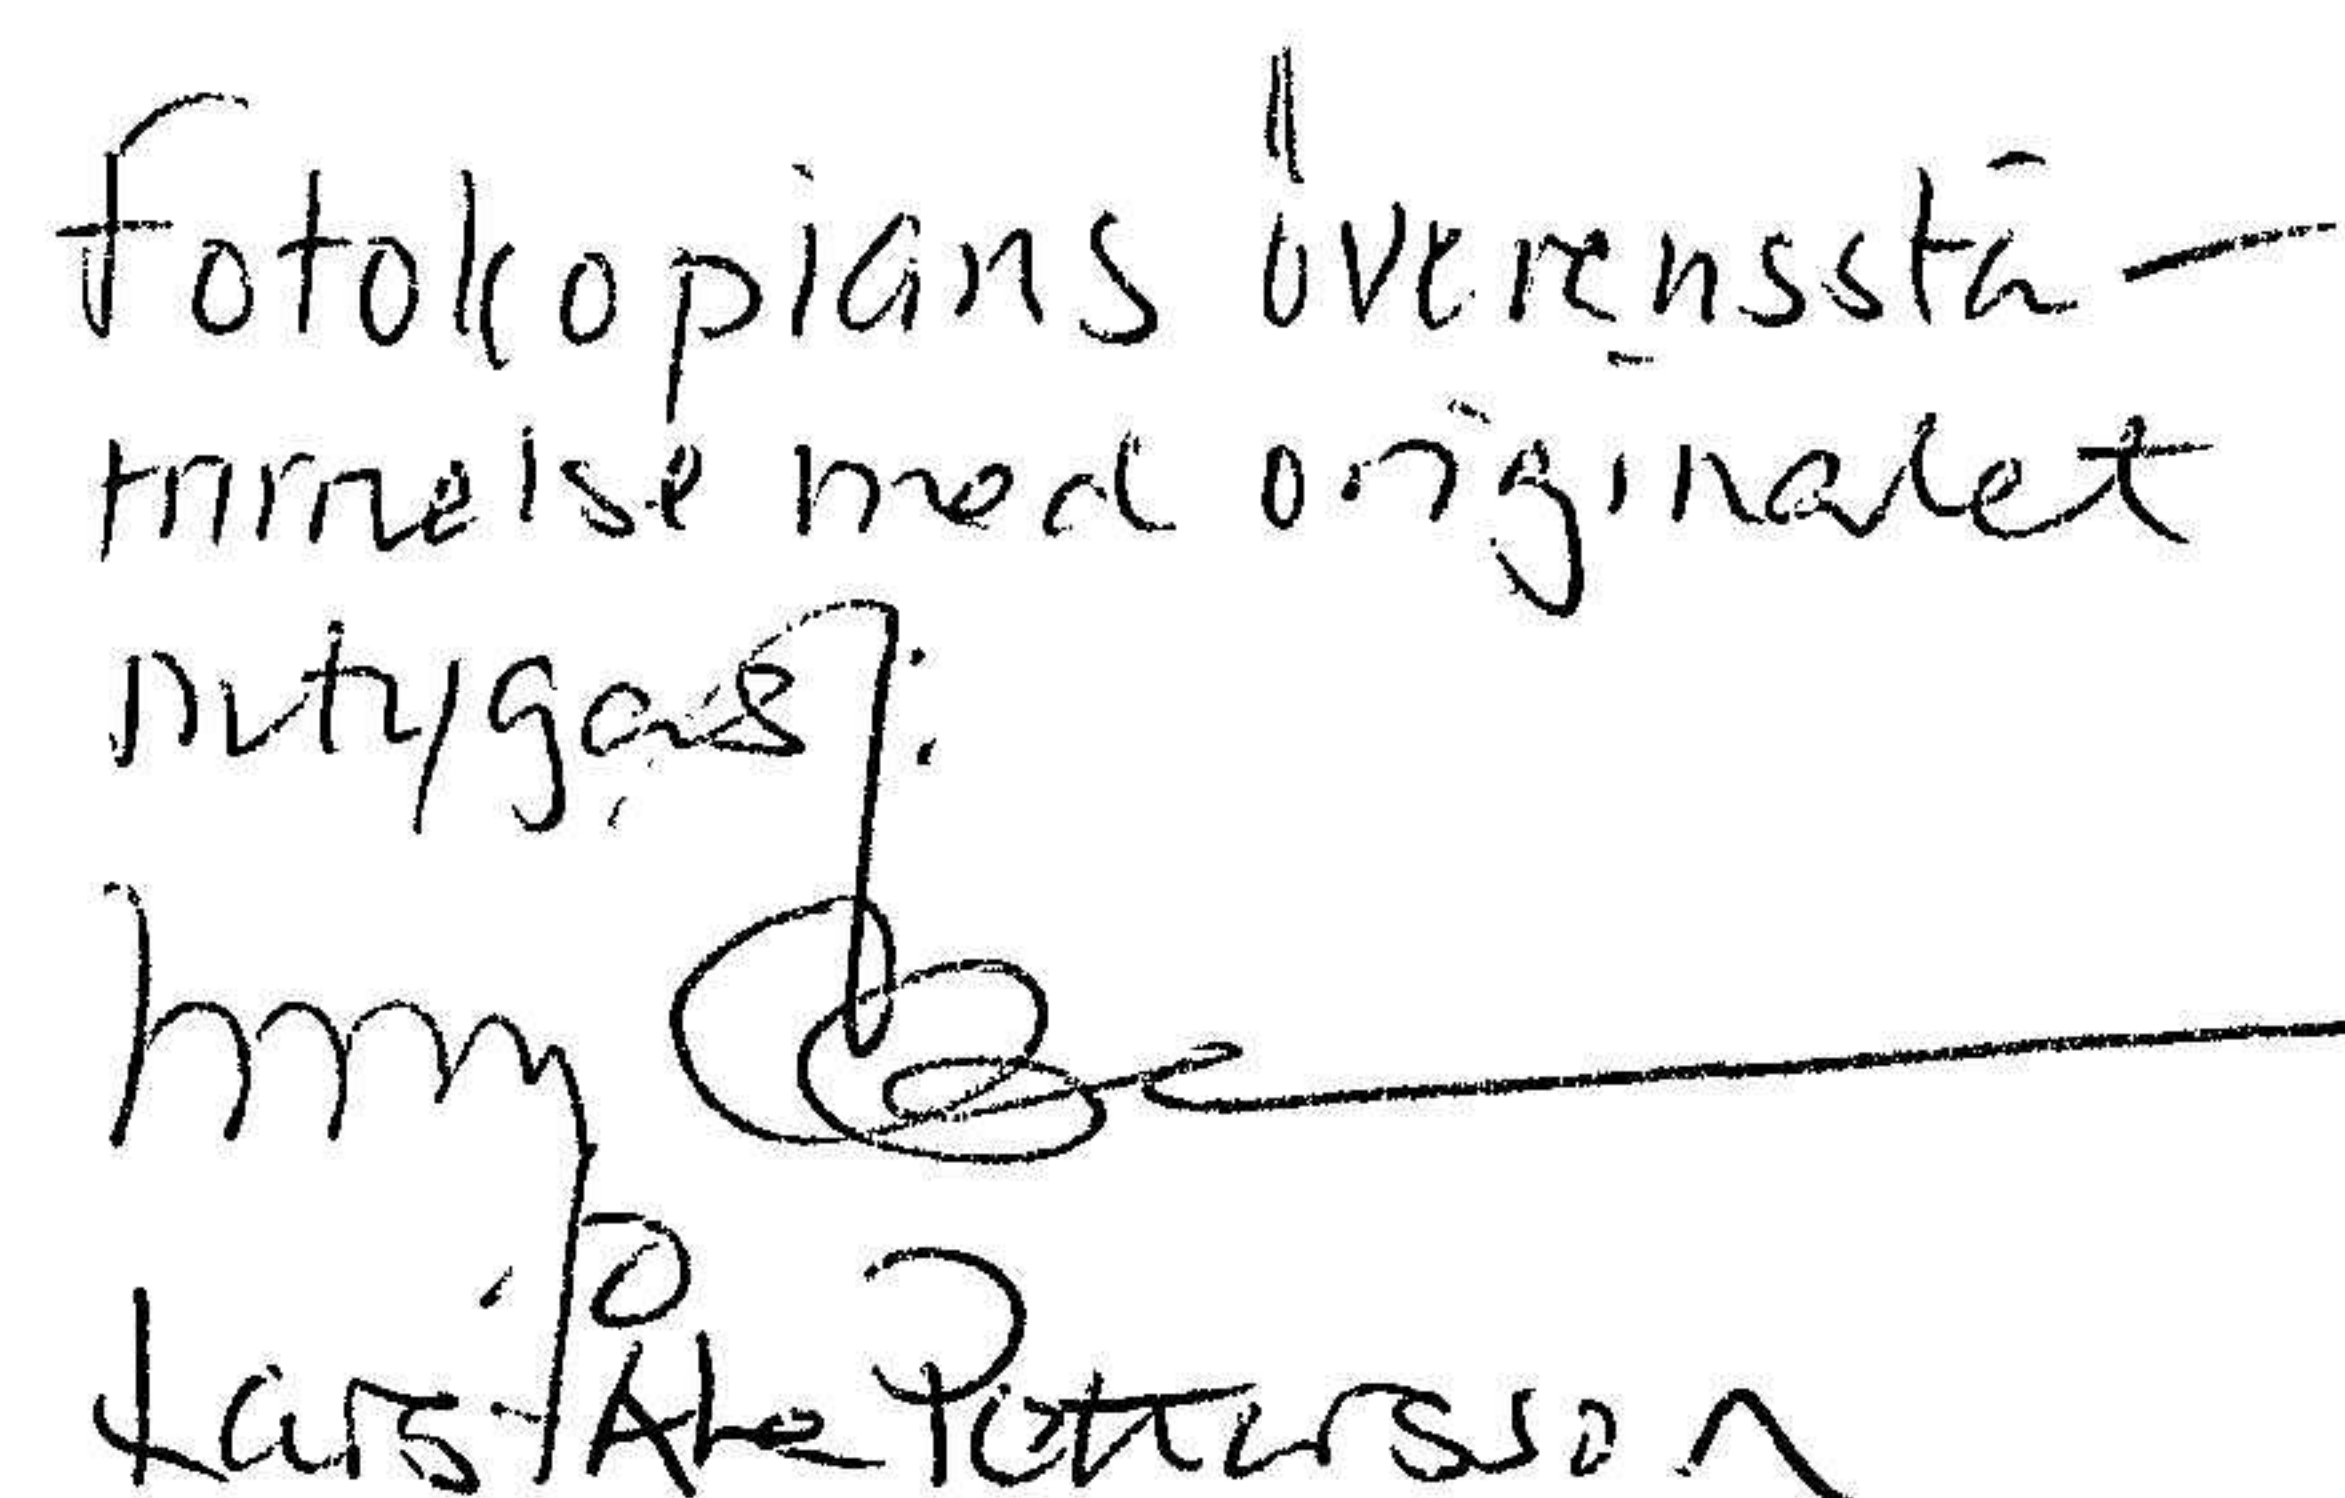 Fotokopians överensstä-
mmelse med originalet
intygas:
Lars-Åke Pettersson